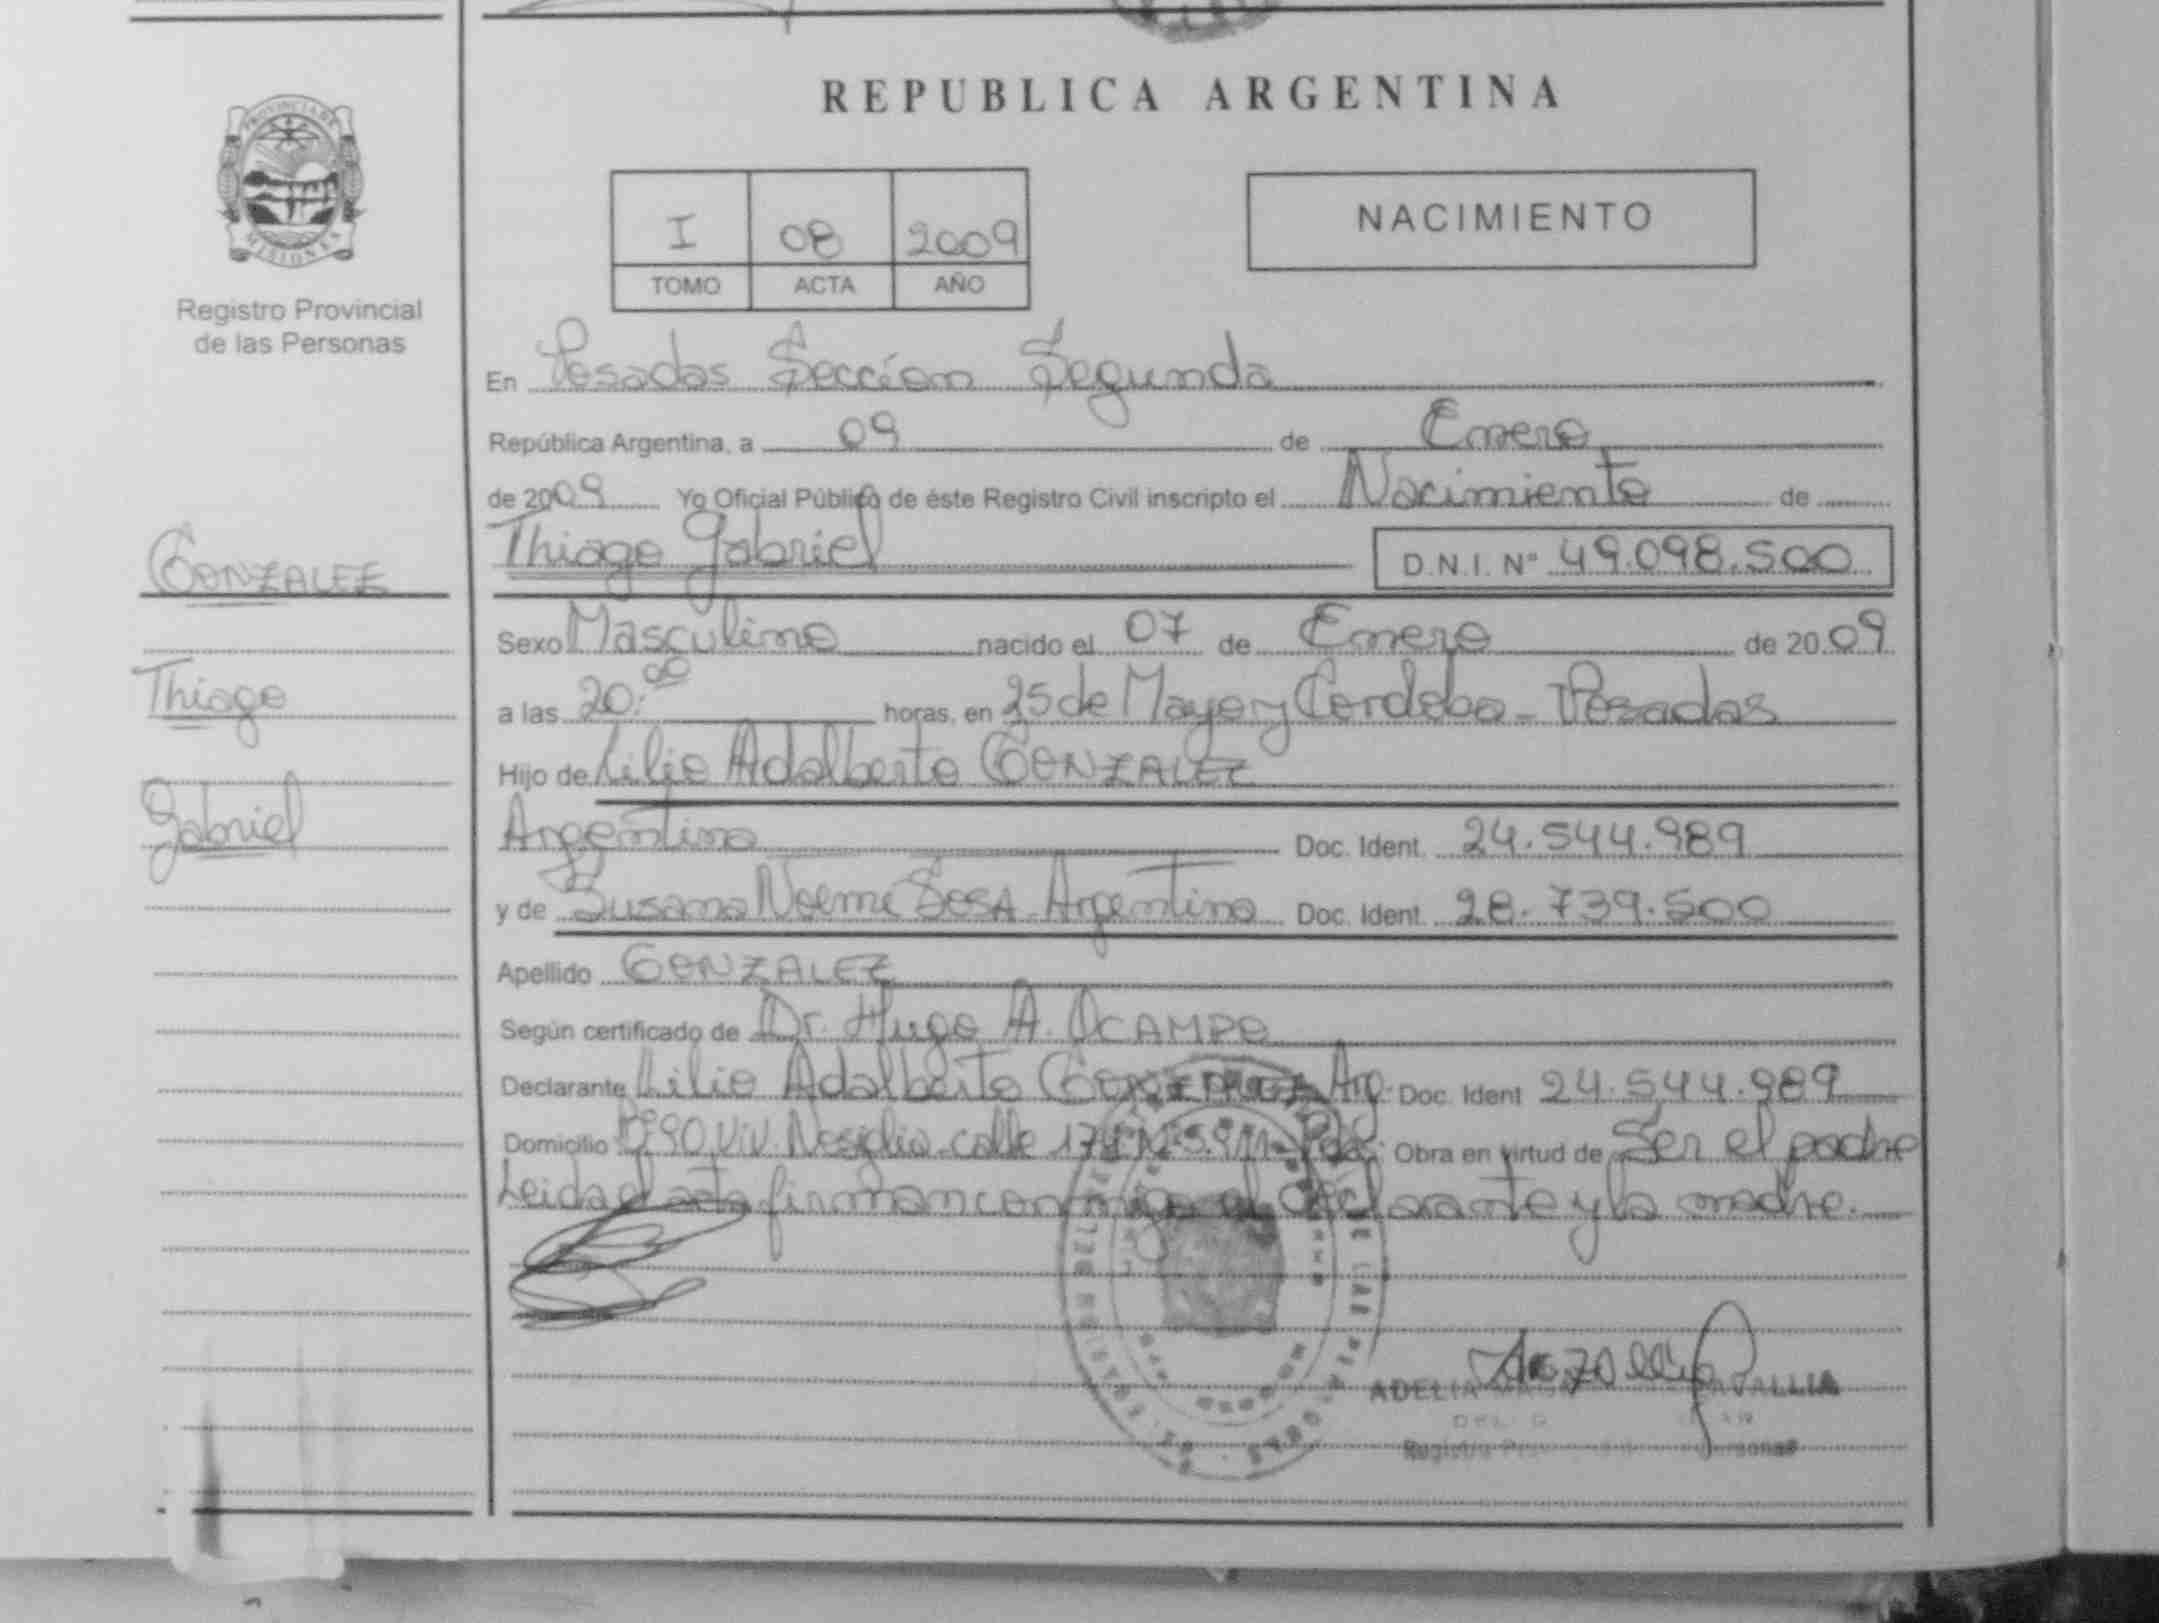 REPUBLICA ARGENTINA
PROVINCIA DE
MISIONES
Registro Provincial
de las Personas
I 08 2009
TOMO ACTA AÑO
NACIMIENTO
En Posadas Sección Segunda
República Argentina, a 09 de Enero
de 2009 Yo Oficial Público de éste Registro Civil inscripto el Nacimiento de
Thiago Gabriel D.N.I. Nº 49.098.500
GONZALEZ
Thiago
Gabriel
Sexo Masculino nacido el 07 de Enero de 2009
a las 20:00 horas, en 25 de Mayo y Cordoba - Posadas
Hijo de Lilio Adalberto GONZALEZ
Argentino Doc. Ident. 24.544.989
y de Susana Noemi SOSA Argentina Doc. Ident. 28.739.500
Apellido GONZALEZ
Según certificado de Dr. Hugo A. OCAMPO
Declarante Lilio Adalberto GONZALEZ Arg. Doc. Ident 24.544.989
Domicilio calle Obra en virtud de Ser el padre
Leida el acta firman conmigo el declarante y la madre.
ADELIA
Registro